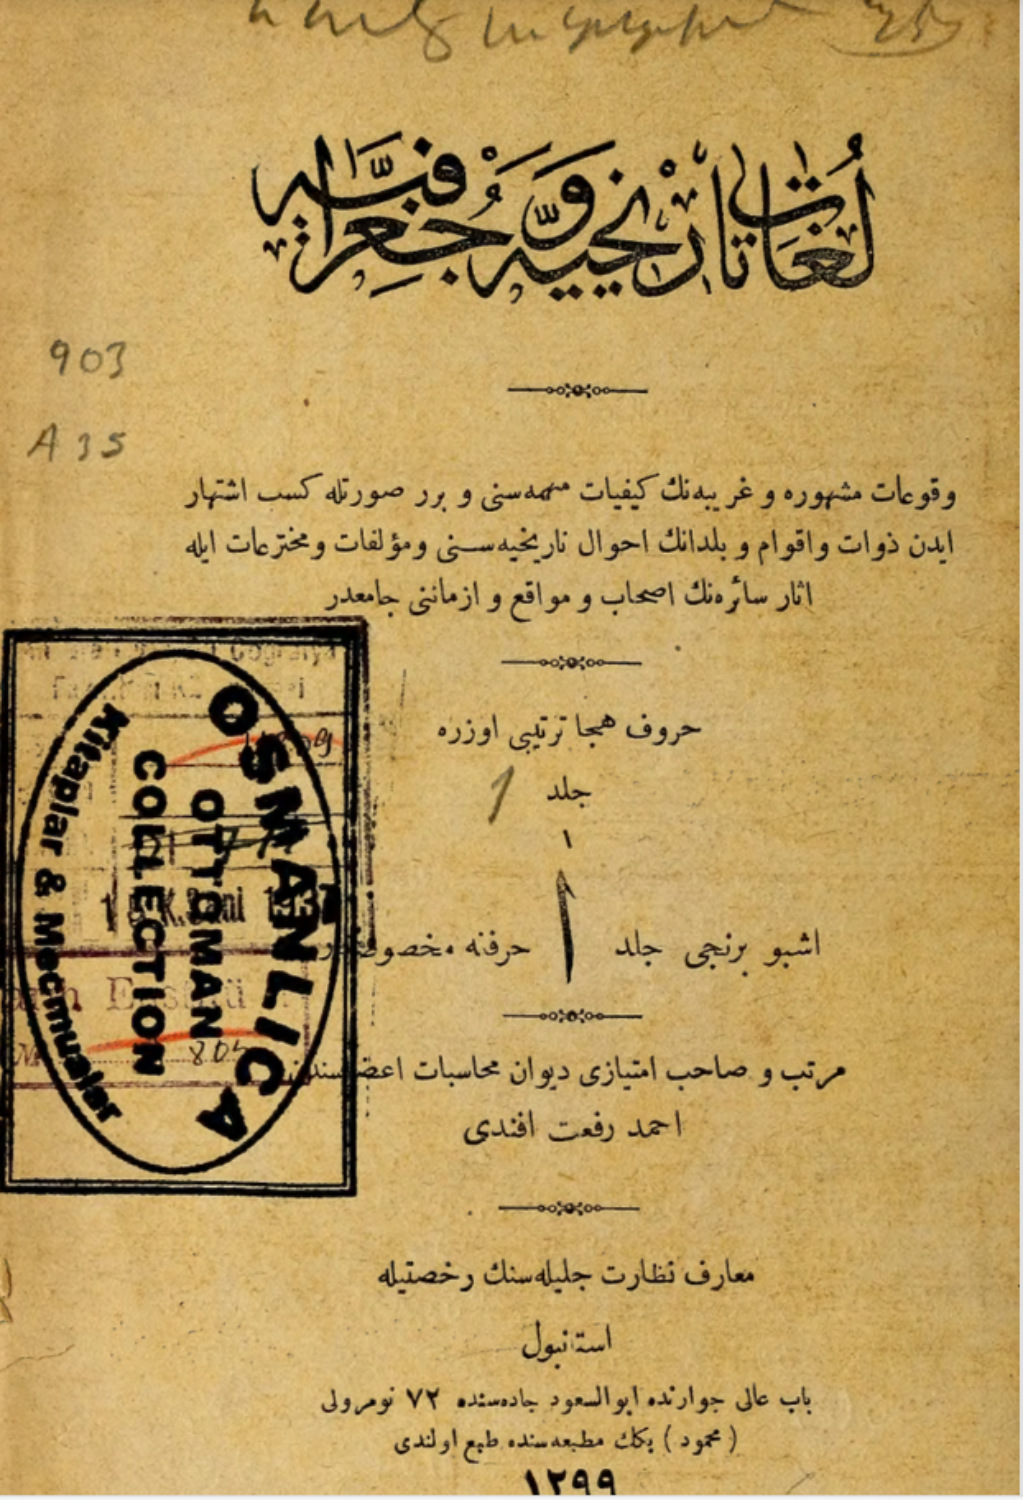 لُغَات تَارِيْخِيَّه وَ جُغْرَافِيَّه
903
A 35
وقوعات مشهوره و غريبه‌نك كيفيات مهمه‌سنى و برر صورتله كسب اشتهار
ايدن ذوات واقوام و بلدانك احوال تاريخيه‌سنى ومؤلفات ومخترعات ايله
اثار سائره‌نك اصحاب و مواقع و ازماننى جامعدر
حروف هجا ترتيبى اوزره
جلد 1
١
اشبو برنجى جلد ا حرفنه
مرتب و صاحب امتيازى ديوان محاسبات
احمد رفعت افندى
معارف نظارت جليله‌سنك رخصتيله
استانبول
باب عالى جوارنده ابوالسعود جاده‌سنده ٧٢ نومرولى
(محمود) بكك مطبعه‌سنده طبع اولندى
١٢٩٩
OSMANLICA
OTTOMAN
COLLECTION
Kitaplar & Mecmualar